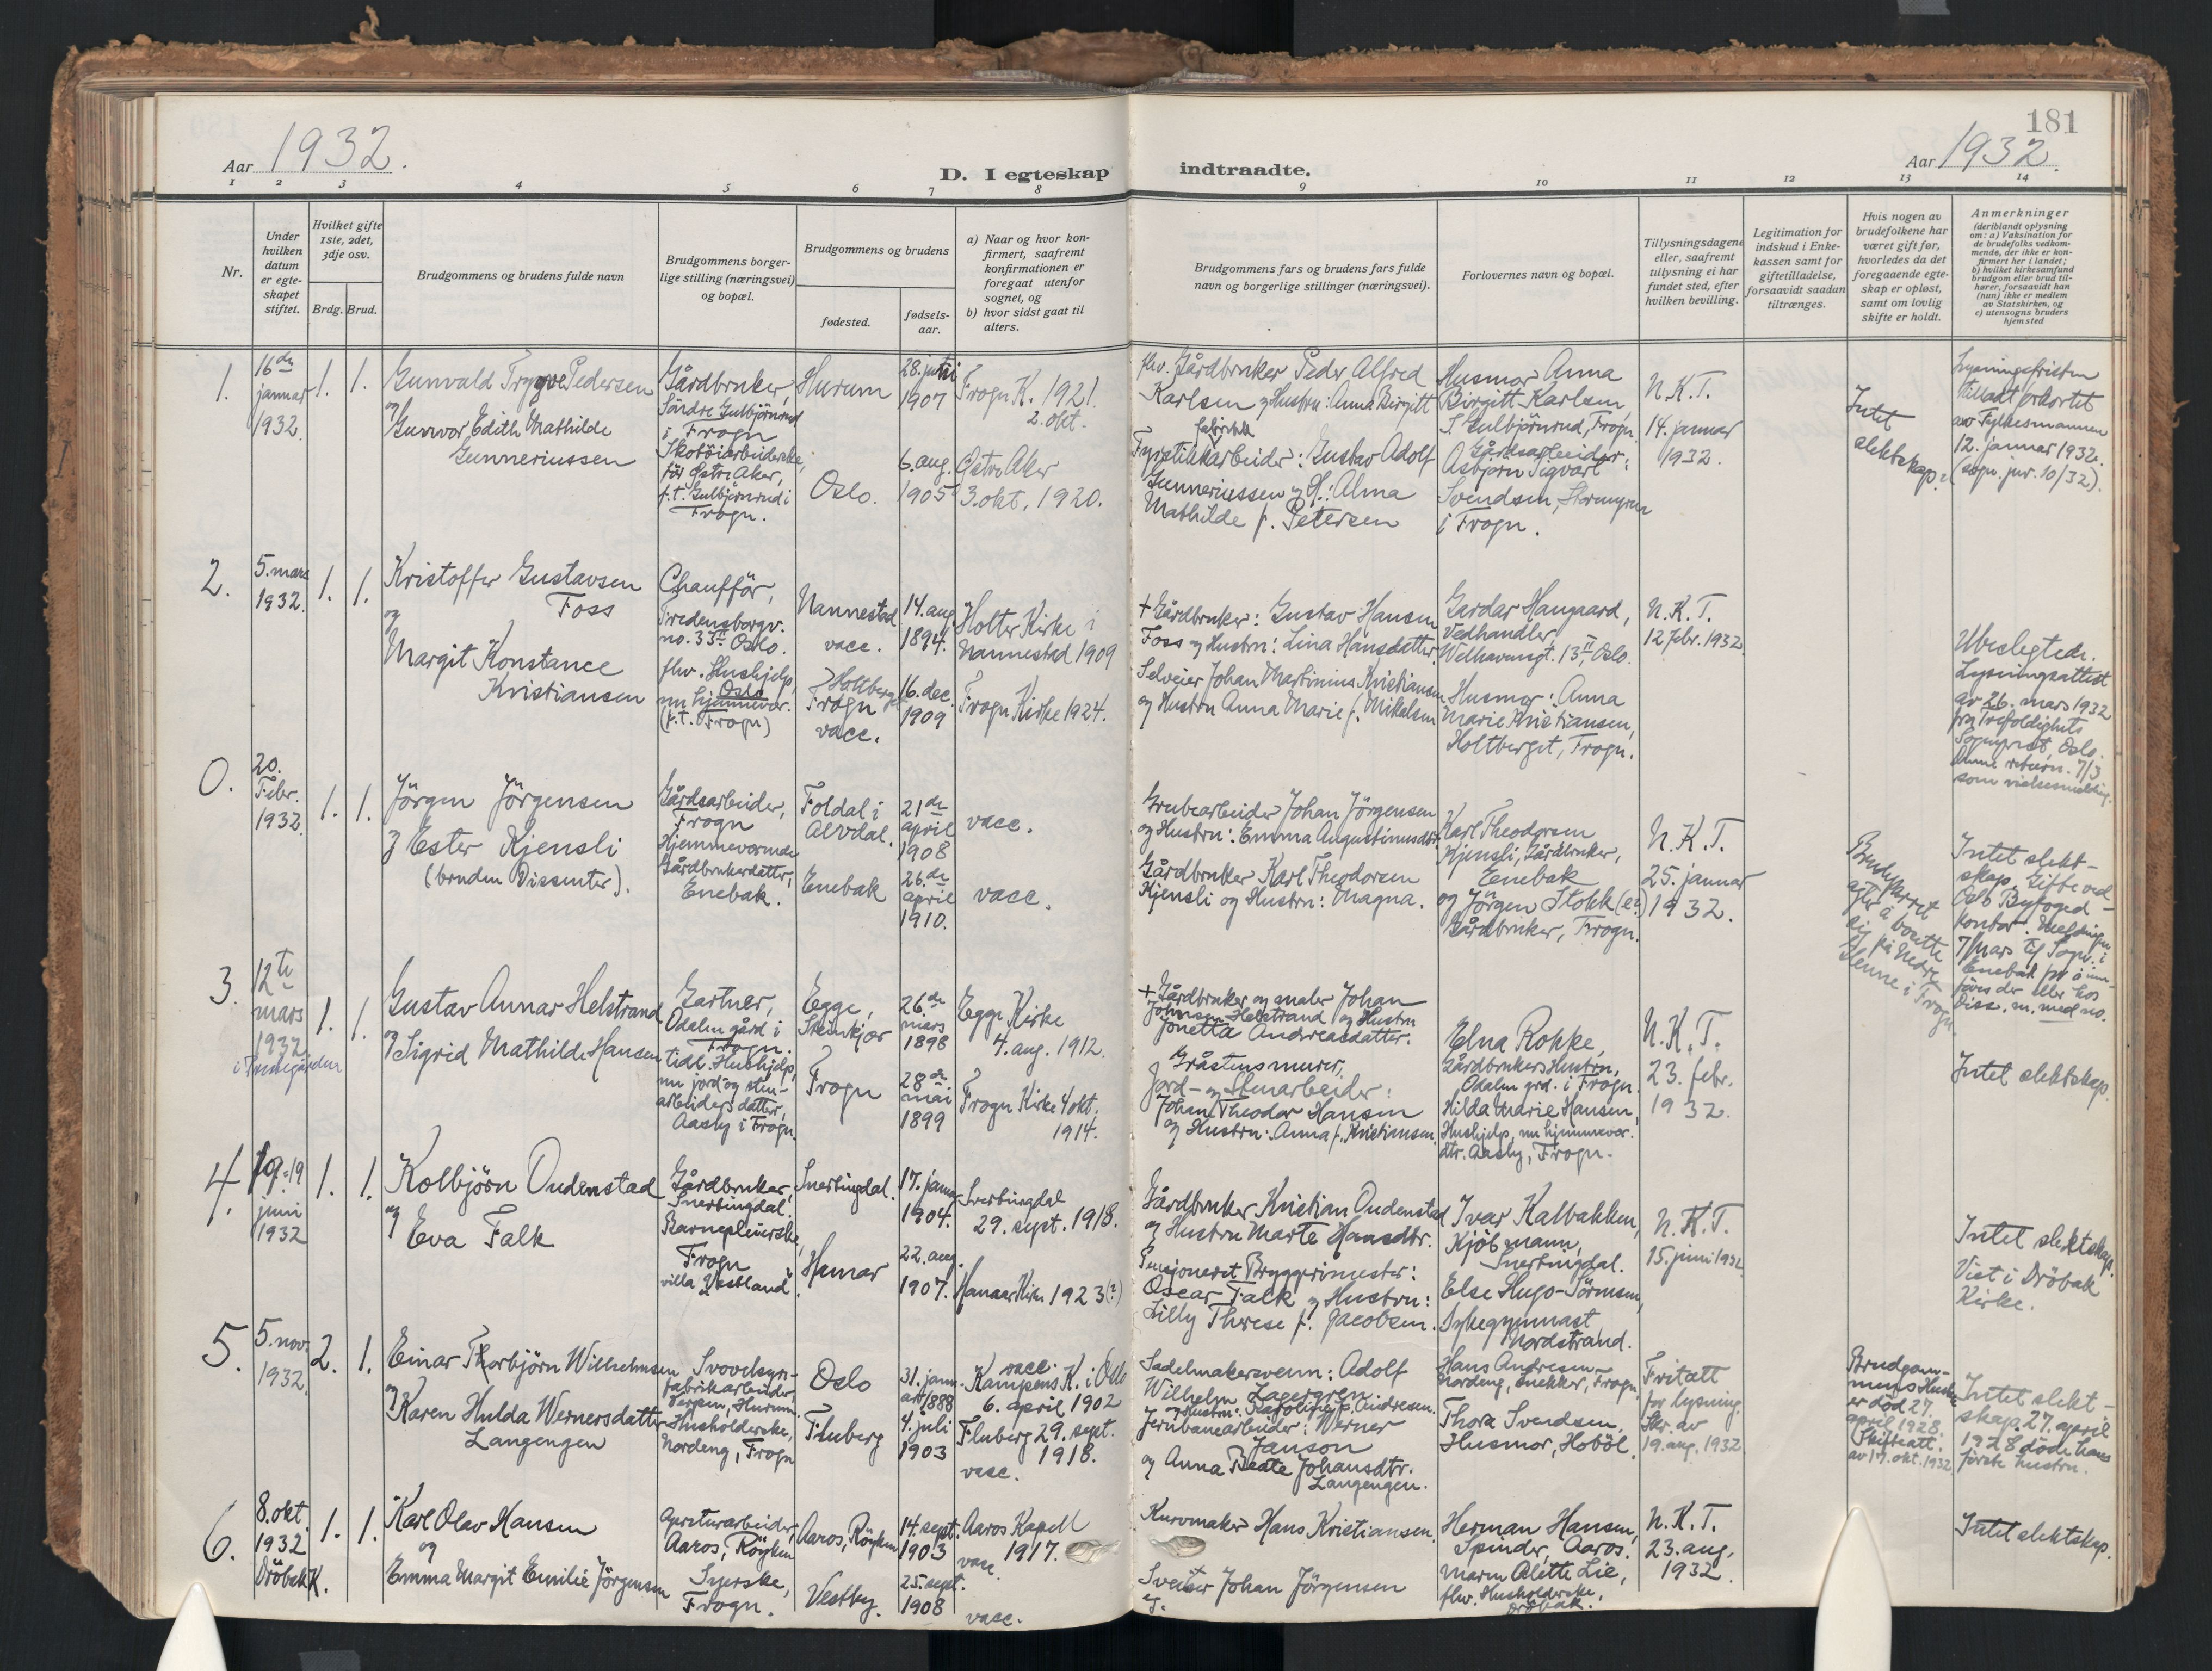 181
Aar 1932.
D. I egteskap indtraadte.
Aar 1932.
1 2 3 4 5 6 7 8 9 10 11 12 13 14
Nr.
Under hvilken datum er egteskapet stiftet.
Hvilket gifte 1ste, 2det, 3dje osv.
Brdg. Brud.
Brudgommens og brudens fulde navn
Brudgommens borgerlige stilling (næringsvei) og bopæl.
Brudgommens og brudens
fødested.
fødselsaar.
a) Naar og hvor konfirmert, saafremt konfirmationen er foregaat utenfor sognet, og
b) hvor sidst gaat til alters.
Brudgommens fars og brudens fars fulde navn og borgerlige stillinger (næringsvei).
Forlovernes navn og bopæl.
Tillysningsdagene eller, saafremt tillysning ei har fundet sted, efter hvilken bevilling.
Legitimation for indskud i Enkekassen samt for giftetilladelse, forsaavidt saadan tiltrænges.
Hvis nogen av brudefolkene har været gift før, hvorledes da det foregaaende egteskap er opløst, samt om lovlig skifte er holdt.
Anmerkninger
(deriblandt oplysning om: a) Vaksination for de brudefolks vedkommende, der ikke er konfirmert her i landet;
b) hvilket kirkesamfund brudgom eller brud tilhører, forsaavidt han (hun) ikke er medlem av Statskirken, og
c) utensogns bruders hjemsted
1.
16de
januar
1932.
1. 1.
Gunvald Trygve Pedersen
og
Gunvor Edith Mathilde
Gunneriussen
Gårdbruker,
Söndre Gulbjörnrud
i Frogn
Skotöiarbeiderske,
för Östre Aker,
p.t. Gulbjörnrud i
Frogn.
Hurum
Oslo.
28. juni
1907
6. aug.
1905
Frogn K. 1921.
2. okt.
Östre Aker
3. okt. 1920.
fhv. Gårdbruker Peder Alfred
Karlsen og Hustru: Anna Birgitt
fabrikk
Fyrstikkarbeider: Gustav Adolf
Gunneriussen og H.: Alma
Mathilde f. Petersen
Husmor Anna
Birgitt Karlsen,
S. Gulbjörnrud, Frogn.
Gårdsarbeider:
Asbjörn Sigvart
Svendsen, Stormyren
i Frogn.
N.K.T.
14. januar
1932.
Intet
slektskap.
Lysningsfristen
tilladt forkortet
av Fylkesmannen
12. januar 1932.
(sogn. jur. 10/32).
2.
5. mars
1932.
1. 1.
Kristoffer Gustavsen
Foss
og
Margit Konstance
Kristiansen
Chaufför,
Fredensborgv.
no. 33II Oslo.
fhv. Hushjelp,
Oslo
nu hjemmevær.
(p.t. Frogn)
Nannestad
vacc.
Holtberget
Frogn
vacc.
14. aug.
1894.
16. dec.
1909
Holter Kirke i
Nannestad 1909
Frogn Kirke 1924.
+ Gårdbruker: Gustav Hansen
Foss og Hustru: Lina Hansdatter.
Selveier Johan Martinius Kristiansen
og Hustru Anna Marie f. Mikelsen
Gardar Haugaard,
Vedhandler,
Welhavensgt. 13II Oslo.
Husmor: Anna
Marie Kristiansen,
Holtberget, Frogn.
N.K.T.
12 febr. 1932.
Ubeslegtede.
Lysningsattest
av 26. mars 1932
fra Trefoldighets
Sogneprest, Oslo.
Denne return. 7/3
som vielsesmelding.
0.
20.
Febr.
1932.
1. 1.
Jörgen Jörgensen
og Ester Kjensli
(bruden Dissenter).
Gårdsarbeider,
Frogn
Hjemmeværende
Gårdbrukerdatter,
Enebak.
Foldal i
Alvdal.
Enebak
21de
april
1908
26.de
april
1910.
vacc.
vacc.
Grubearbeider Johan Jörgensen
og Hustru: Emma Augustinusdtr.
Gårdbruker Karl Theodorsen
Kjensli og Hustru: Magna.
Karl Theodorsen
Kjensli, Gårdbruker,
Enebak
og Jörgen Stokk (e?)
Gårdbruker, Frogn.
N.K.T.
25. januar
1932.
Brudeparret
agter å bosette
sig på Nedre
Glenne i Frogn.
Intet slekt-
skap. Gifte ved
Oslo Byfoged-
kontor. Meldingen
7/mars til Sogn. i
Enebak for å inn-
föres der eller hos
Diss. m. med no.
3.
12te
mars
1932
i Prestegården
1. 1.
Gustav Annar Helstrand
og Sigrid Mathilde Hansen
Gartner,
Odalen gård i
Frogn.
tidl. Hushjelp,
nu jord og sten-
arbeiders datter,
Aasly i Frogn.
Egge,
Stenkjær
Frogn
26.de
mars
1898
28de
mai
1899
Egge Kirke
4. aug. 1912.
Frogn Kirke 4 okt.
1914.
+ Gårdbruker og maler Johan
Johnsen Helstrand og Hustru
Jonetta Andreasdatter.
Gråstensmurer,
Jord- og Stenarbeider:
Johan Theodor Hansen
og Hustru: Anna f. Kristiansen.
Elna Rokke,
Gårdbrukers Hustru,
Odalen grd. i Frogn.
Hilda Marie Hansen,
Hushjelp, nu hjemmevær.
dtr. Aasly, Frogn.
N.K.T.
23. febr.
1932.
Intet slektskap.
4.
19
juni
1932
1. 1.
Kolbjörn Oudenstad
og
Eva Falk
Gårdbruker,
Snertingdal.
Barnepleierske,
Frogn
villa "Vestland".
Snertingdal.
Hamar
17. januar
1904.
22. aug.
1907.
Snertingdal
29. sept. 1918.
Hamar Kirke 1923(?)
Gårdbruker Kristian Oudenstad
og Hustru Marte Hansdtr.
Pensjoneret Bryggerimester:
Oscar Falk og Hustru:
Lilly Therese f. Jacobsen.
Ivar Kalbakken,
Kjöbmann,
Snertingdal.
Else Hugo-Sörensen,
Sykegymnast,
Nordstrand.
N.K.T.
15. juni 1932.
Intet slektskap.
Viet i Dröbak
Kirke.
5.
5. nov.
1932.
2. 1.
Einar Thorbjörn Wilhelmsen
og
Karen Hulda Wernersdatter
Langengen
Svovelsyre-
fabrikarbeider,
Verpen, Hurum
Husholderske,
Nordeng, Frogn
Oslo
Fluberg
31. janu-
ar 1888
4. juli
1903
vacc.
Kampens K. i Oslo
6. april 1902
Fluberg 29. sept.
1918.
vacc.
Sadelmakersvenn: Adolf
Wilhelm Lagergren
og Hustru: Karoline f. Andresen.
Jernbanearbeider: Werner
Janson
og Anna Beate Johansdtr.
Langengen.
Hans Andresen
Nordeng, Snekker, Frogn,
Thora Svendsen,
Husmor, Hoböl.
Fritatt
for lysning.
Skr. av
19. aug. 1932
Brudgom-
mens Hustru
er död 27.
april 1928.
Skifteatt.
av 17. okt. 1932.
Intet slekt-
skap. 27. april
1928 döde hans
förste hustru.
6.
8. okt.
1932
Dröbak K.
1. 1.
Karl Olav Hansen
og
Emma Margit Emilie Jörgensen
Apreturarbeider,
Aaros, Röyken
Syerske,
Frogn.
Aaros, Röyken
Vestby.
14. sept.
1903
25. sept.
1908
Aaros Kapell
1917.
vacc.
vacc.
Kurvmaker Hans Kristiansen.
Sveiser Johan Jörgensen
Herman Hansen,
Spinder, Aaros.
Maren Alette Lie,
fhv. Husholderske,
Dröbak.
N.K.T.
23. aug.
1932.
Intet slektskap.